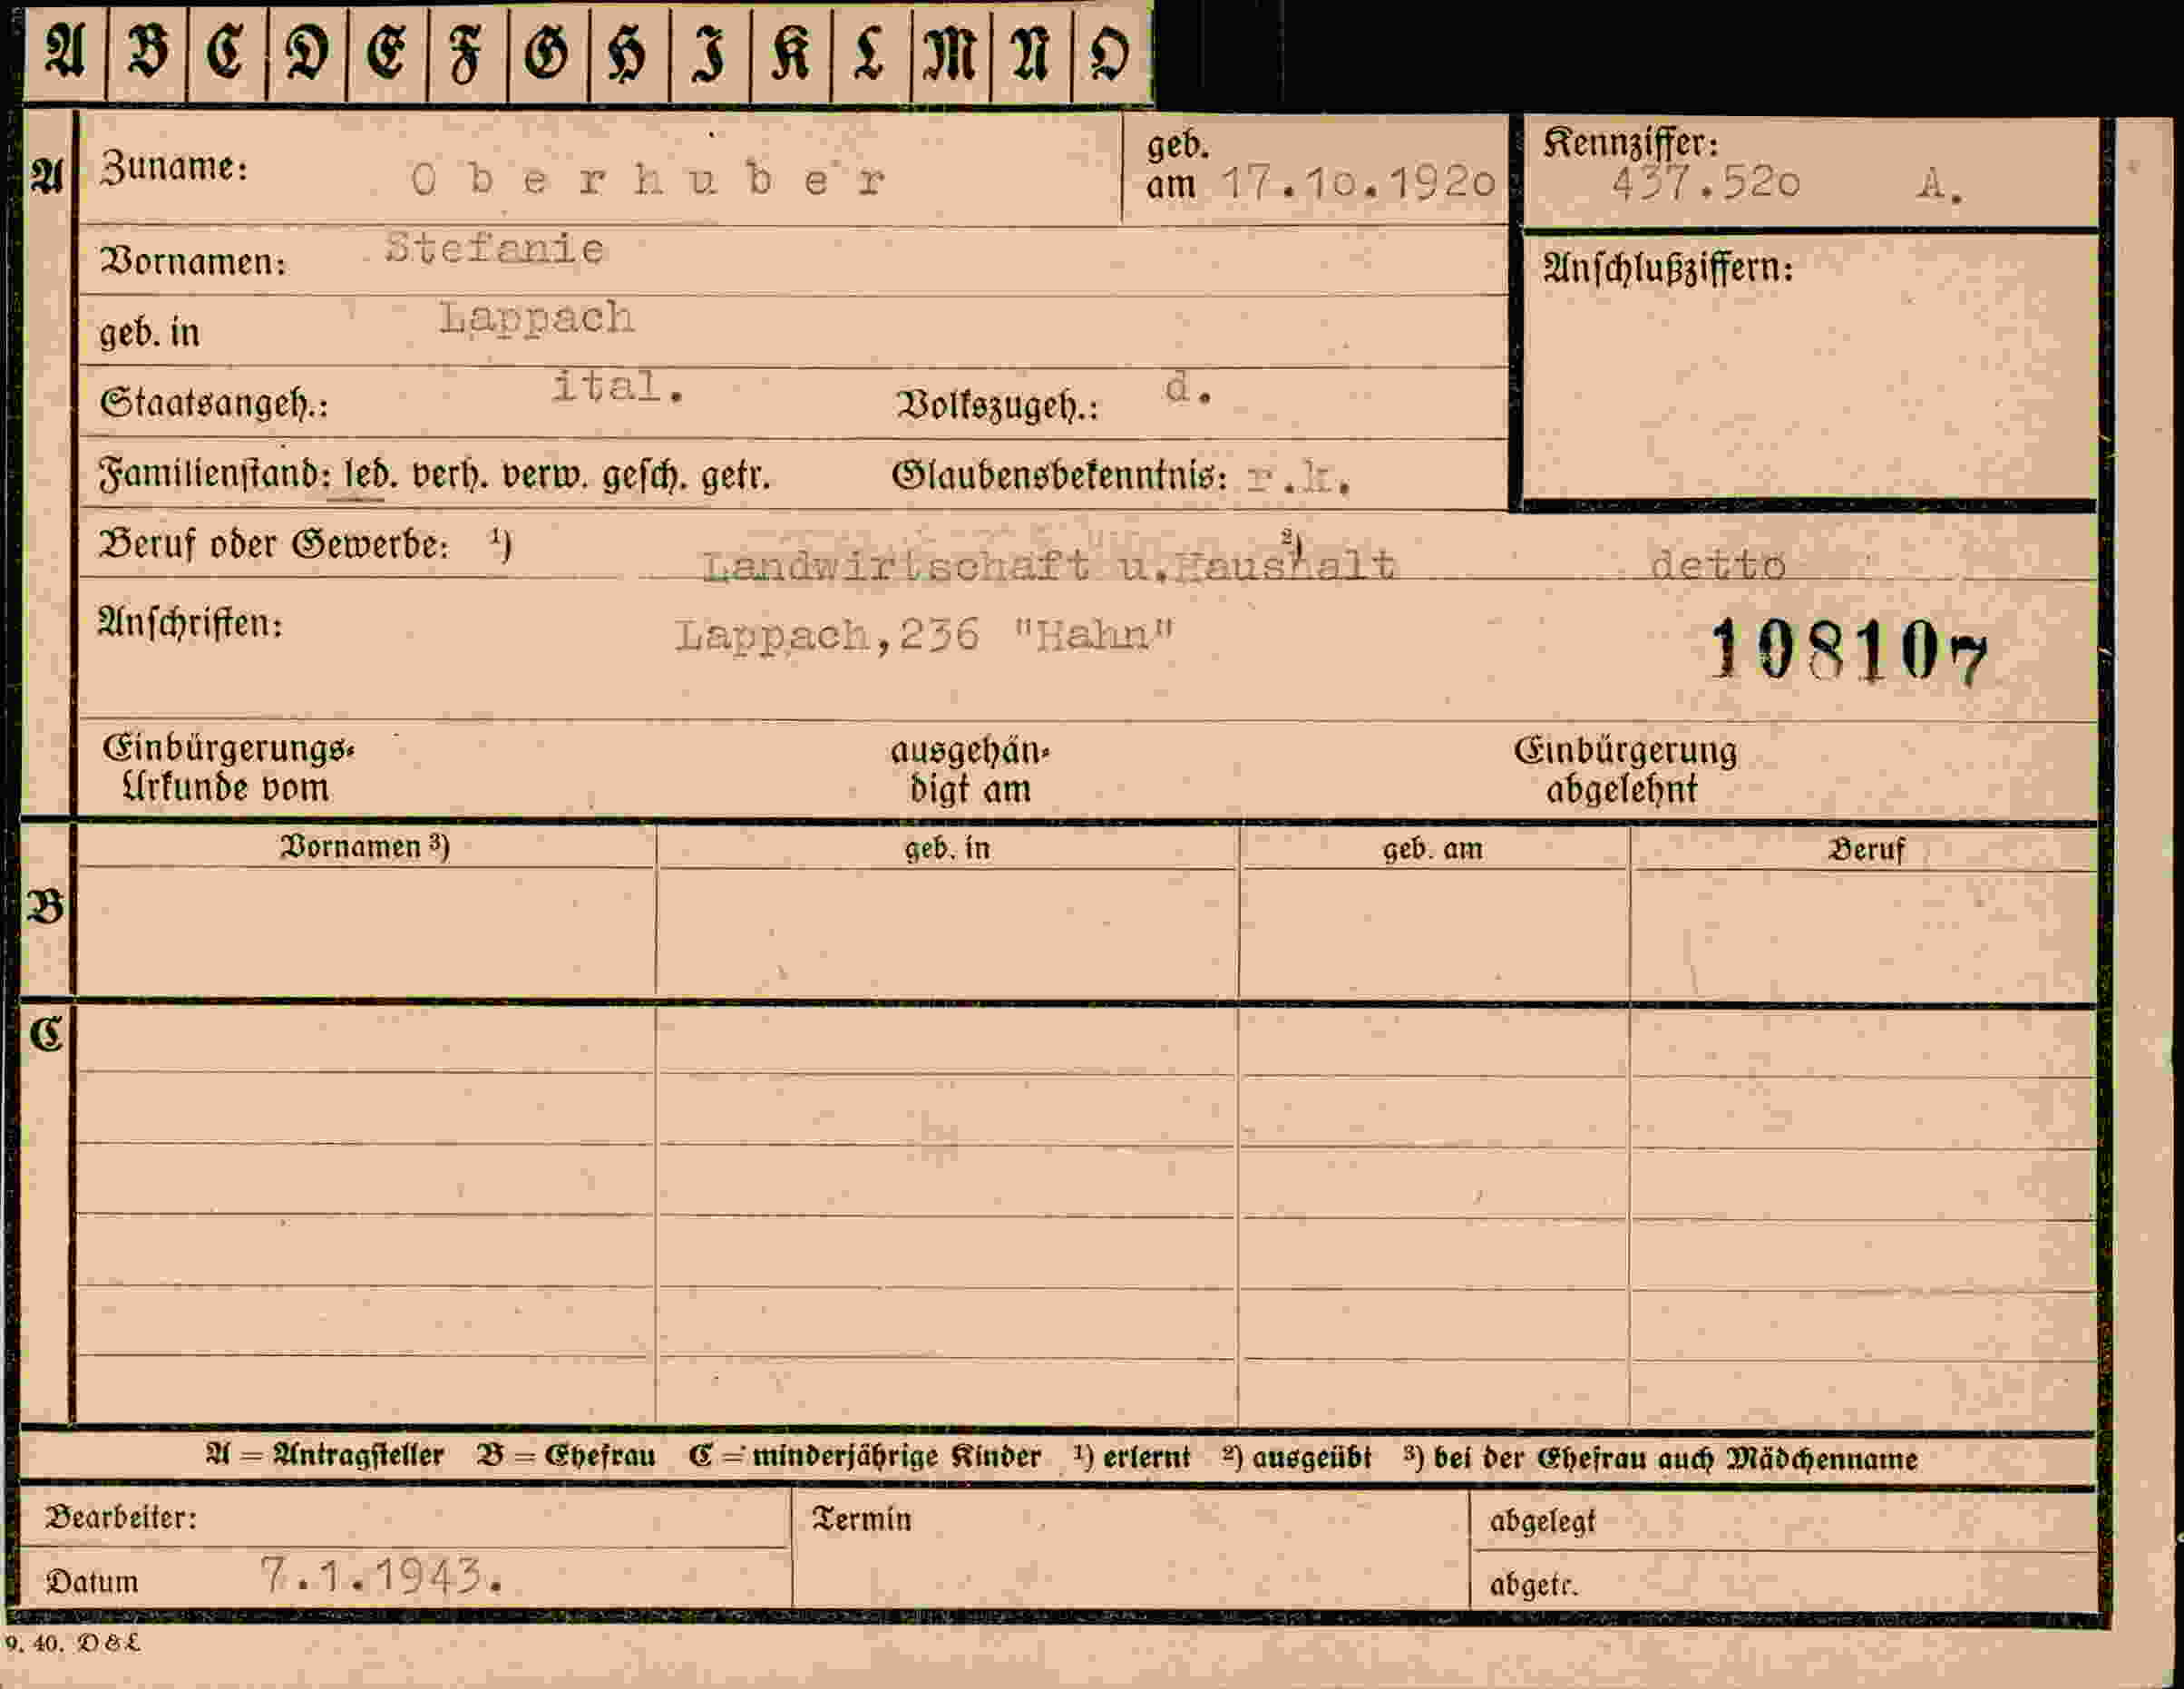 A B C D E F G H I K L M N O
A Zuname: Oberhuber geb. am 17.10.1920 Kennziffer: 437.520 A.
Vornamen: Stefanie Anschlußziffern:
geb. in Lappach
Staatsangeh.: ital. Volkszugeh.: d.
Familienstand: led. verh. verw. gesch. getr. Glaubensbekenntnis: r.k.
Beruf oder Gewerbe: 1) Landwirtschaft u.Haushalt 2) detto
Anschriften: Lappach,236 "Hahn" 108107
Einbürgerungs- ausgehän- Einbürgerung
Urkunde vom digt am abgelehnt
Vornamen 3) geb. in geb. am Beruf
B
C
A = Antragsteller B = Ehefrau C = minderjährige Kinder 1) erlernt 2) ausgeübt 3) bei der Ehefrau auch Mädchenname
Bearbeiter: Termin abgelegt
Datum 7.1.1943. abgetr.
9. 40. D & L